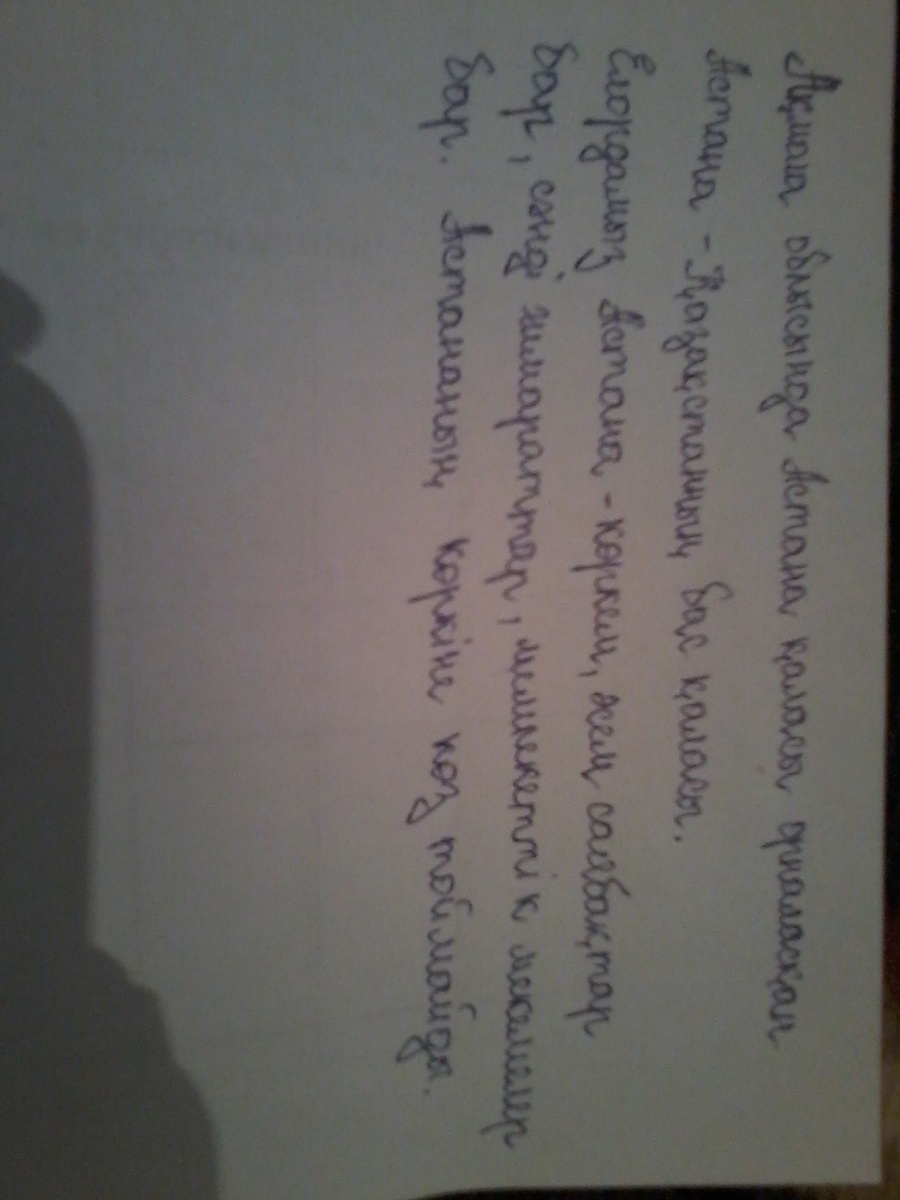 Ақмола облысында Астана қаласы орналасқан
Астана - Қазақстанның бас қаласы.
Елордамыз Астана - көркем, әсем саябақтар
бар, сәнді ғимараттар, мемлекеттік мекемелер
бар. Астананың көркіне көз тоймайды.